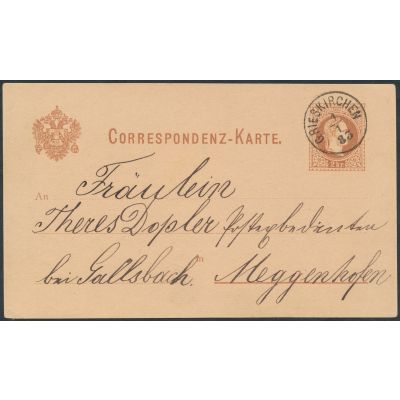 CORRESPONDENZ-KARTE.
GRIESKIRCHEN
83
2 kr
An
Fräulein
Theres Dopler Postexpedienten
bei Gallsbach.
in Meggenhofen